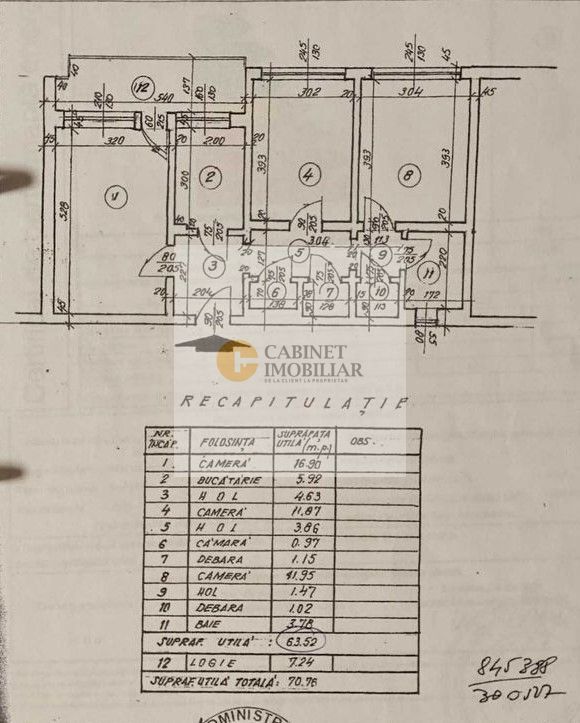 245
130
245
130
45
40
40
137
112
540
210
130
60
205
60
130
302
20
304
45
45
320
20
200
20
393
393
393
300
1
2
4
8
528
20
20
75
205
90
205
304
113
220
80
205
3
5
9
75
205
11
127
6
7
10
20
204
70
138
128
15
113
90
172
45
90
205
80
55
CABINET
IMOBILIAR
DE LA CLIENT LA PROPRIETAR
RECAPITULAȚIE
NR. ÎNCĂP. FOLOSINȚA SUPRAFAȚA UTILĂ (m.p.) OBS.
1 CAMERĂ 16.90
2 BUCĂTĂRIE 5.92
3 HOL 4.63
4 CAMERĂ 11.87
5 HOL 3.86
6 CĂMARĂ 0.97
7 DEBARA 1.15
8 CAMERĂ 11.95
9 HOL 1.47
10 DEBARA 1.02
11 BAIE 3.78
SUPRAF. UTILĂ : 63.52
12 LOGIE 7.24
SUPRAF. UTILĂ TOTALĂ: 70.76
DMINISTR